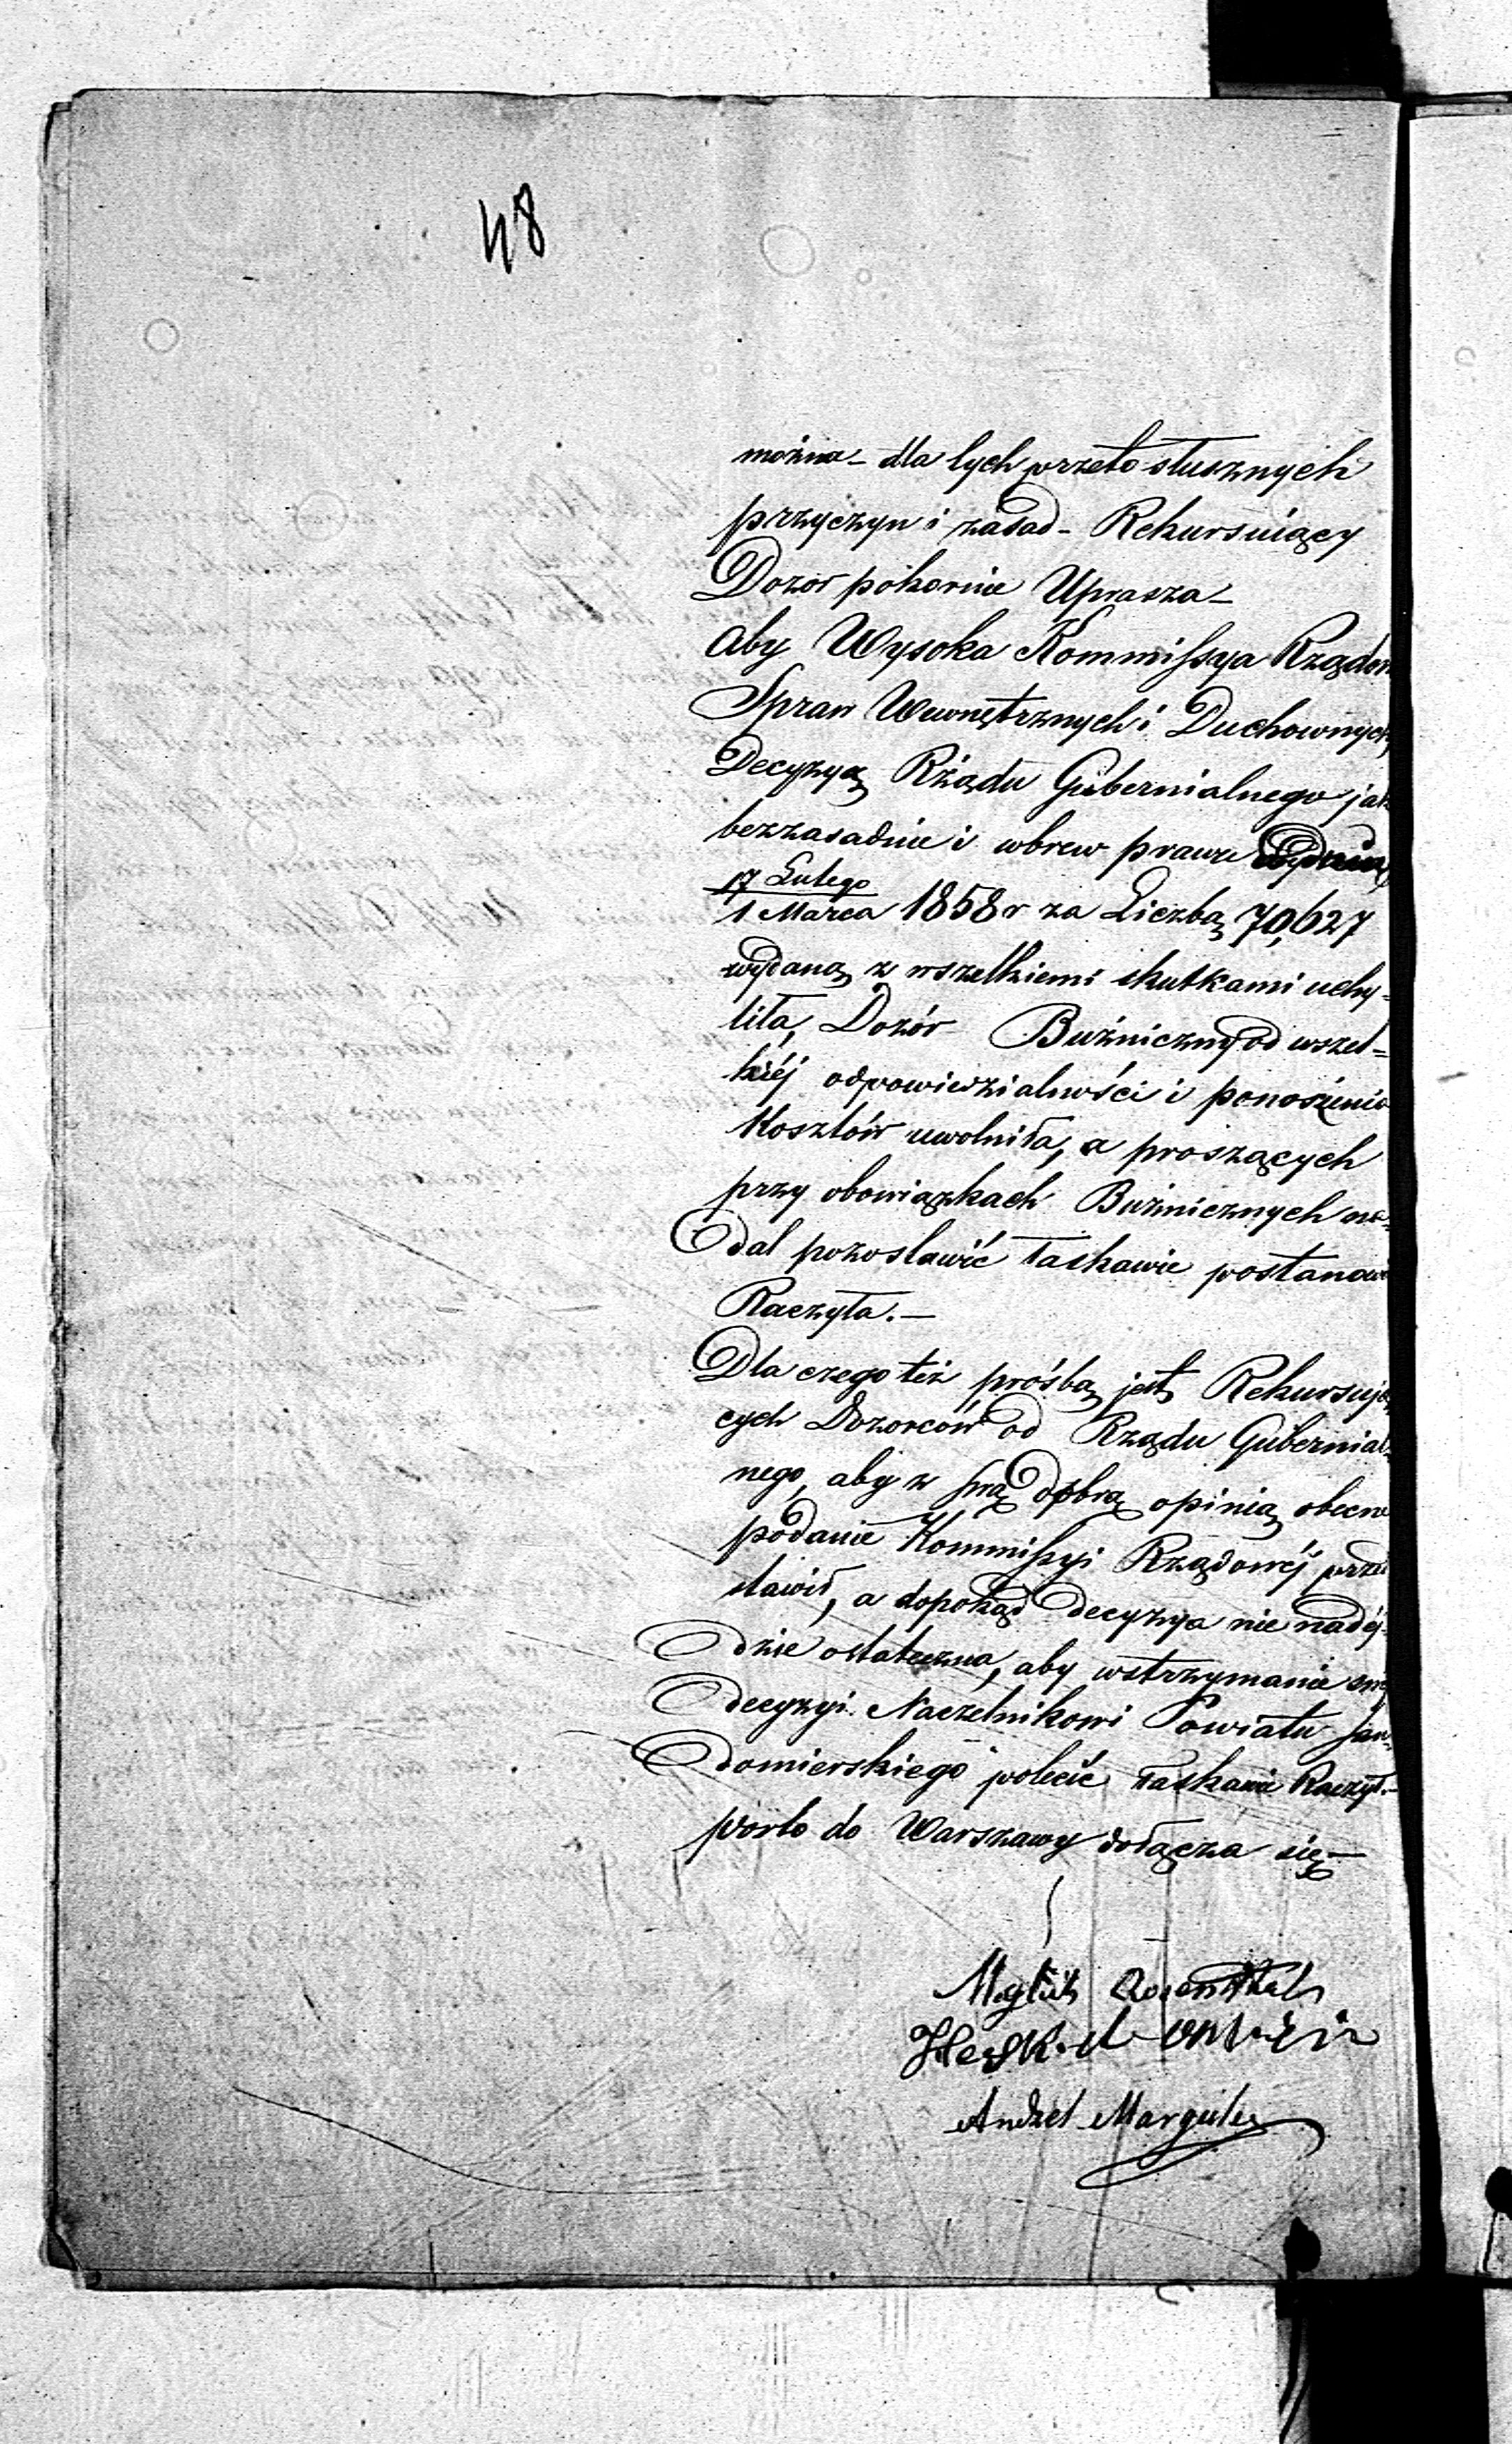 48
można – dla tych przeto słusznych
przyczyn i zasad – Rekursuiący
Dozór pokornie Uprasza –
Aby Wysoka Kommissya Rządow
Spraw Wewnętrznych i Duchownych,
Decyzyą Rządu Gubernialnego jak
bezzasadnie i wbrew prawu
17 Lutego
1 Marca 1858 r za Liczbą 70,627
wydaną z wszelkiemi skutkami uchy-
liła, Dozór Bużniczny od wszel=
kiéj odpowiedzialności i ponoszenia
Kosztów uwolniła, a proszących
przy obowiązkach Bużnicznych na-
dal pozostawić łaskawie postanow
Raczyła. –
Dla czego też prośbą jest Rekursują
cych Dozorców od Rządu Gubernial
nego, aby z swą dobrą opinią obecne
podanie Kommissyi Rządowéj przed
stawił, a dopokąd decyzya nie nadéj-
dzie ostateczna, aby wstrzymanie
decyzyi Naczelnikowi Powiatu San-
domierskiego polecić łaskawie Raczył. –
porto do Warszawy dołącza się –
Rosenthal
Andzel Margules